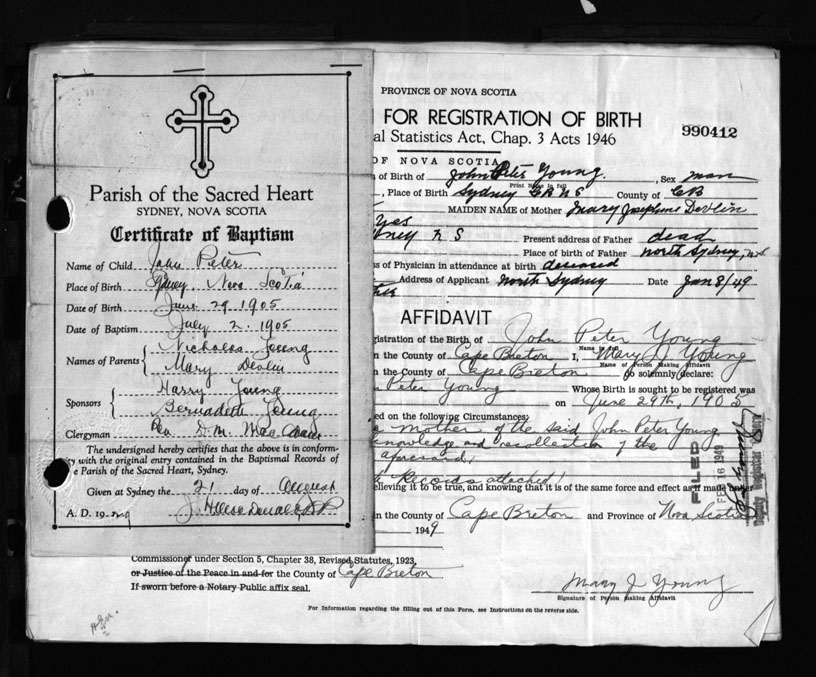 Parish of the Sacred Heart
SYDNEY, NOVA SCOTIA
Certificate of Baptism
Name of Child John Peter
Place of Birth Sydney, Nova Scotia
Date of Birth June 29 1905
Date of Baptism July 2. 1905
Names of Parents
Nicholas Young
Mary Devlin
Sponsors
Harry Young
Bernadette Young
Clergyman Rev D. M. Mac Adam
The undersigned hereby certifies that the above is in conform-
ity with the original entry contained in the Baptismal Records of
e Parish of the Sacred Heart, Sydney.
Given at Sydney the 21 day of August
A. D. 19
PROVINCE OF NOVA SCOTIA
FOR REGISTRATION OF BIRTH
al Statistics Act, Chap. 3 Acts 1946
990412
OF NOVA SCOTIA
of Birth of John Peter Young. , Sex man
Print Name in full
, Place of Birth Sydney CB NS County of CB
MAIDEN NAME of Mother Mary Josephine Devlin
yes
dney N S Present address of Father dead
Place of birth of Father North Sydney, N.S.
s of Physician in attendance at birth deceased
Address of Applicant North Sydney Date Jan 8/49
AFFIDAVIT
gistration of the Birth of John Peter Young
Name in full
n the County of Cape Breton I, Mary J Young
Name of Person Making Affidavit
n the County of Cape Breton do solemnly declare:
Peter Young Whose Birth is sought to be registered was
on June 29th, 1905
ed on the following Circumstances:
e mother of the said John Peter Young
knowledge and recollection of the
aforesaid,
Records attached!
elieving it to be true, and knowing that it is of the same force and effect as if made
in the County of Cape Breton and Province of Nova Scotia
1949
FILED
FEB 16 1949
Deputy Registrar
Commissioner under Section 5, Chapter 38, Revised Statutes, 1923,
or Justice of the Peace in and for the County of Cape Breton
If sworn before a Notary Public affix seal.
Mary J Young
Signature of Person Making Affidavit
For Information regarding the filling out of this Form, see Instructions on the reverse side.